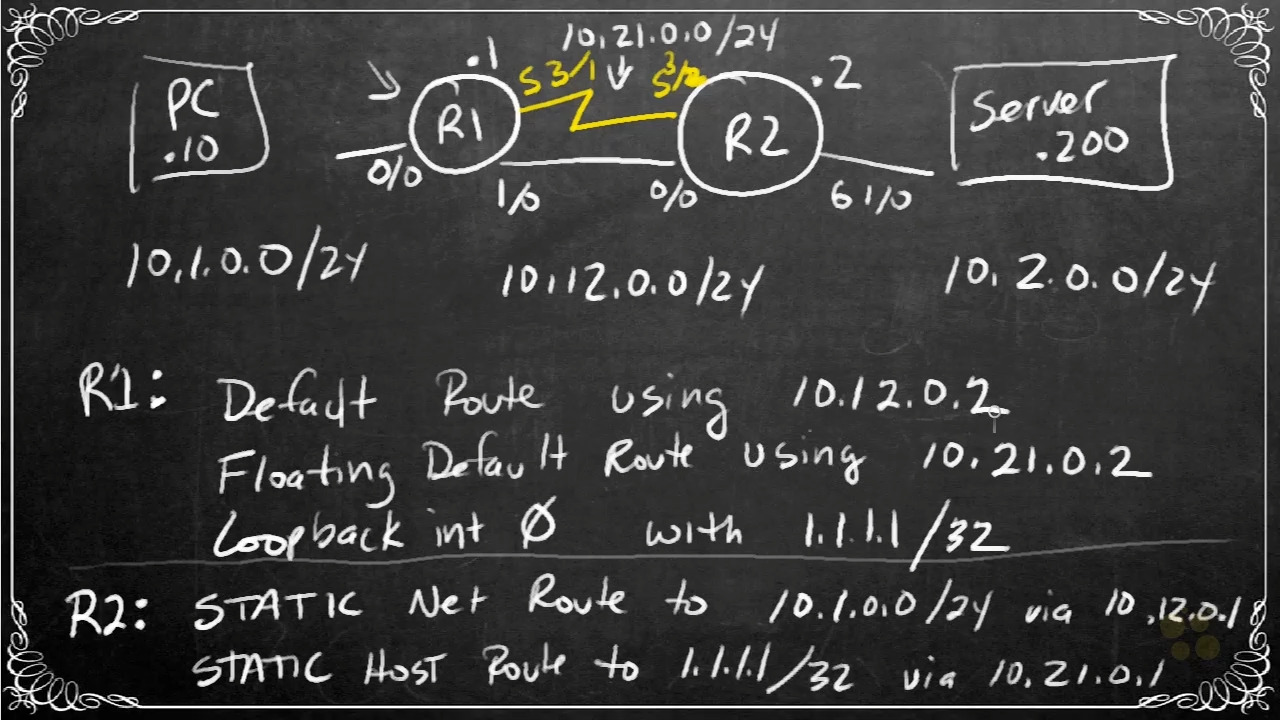 10.21.0.0/24
.1
S3/1
S3/2
.2
PC
.10
R1
R2
Server
.200
0/0
1/0
0/0
G 1/0
10.1.0.0/24
10.12.0.0/24
10.2.0.0/24
R1: Default Route using 10.12.0.2
Floating Default Route using 10.21.0.2
Loopback int Ø with 1.1.1.1/32
R2: STATIC Net Route to 10.1.0.0/24 via 10.12.0.1
STATIC HOST Route to 1.1.1.1/32 via 10.21.0.1